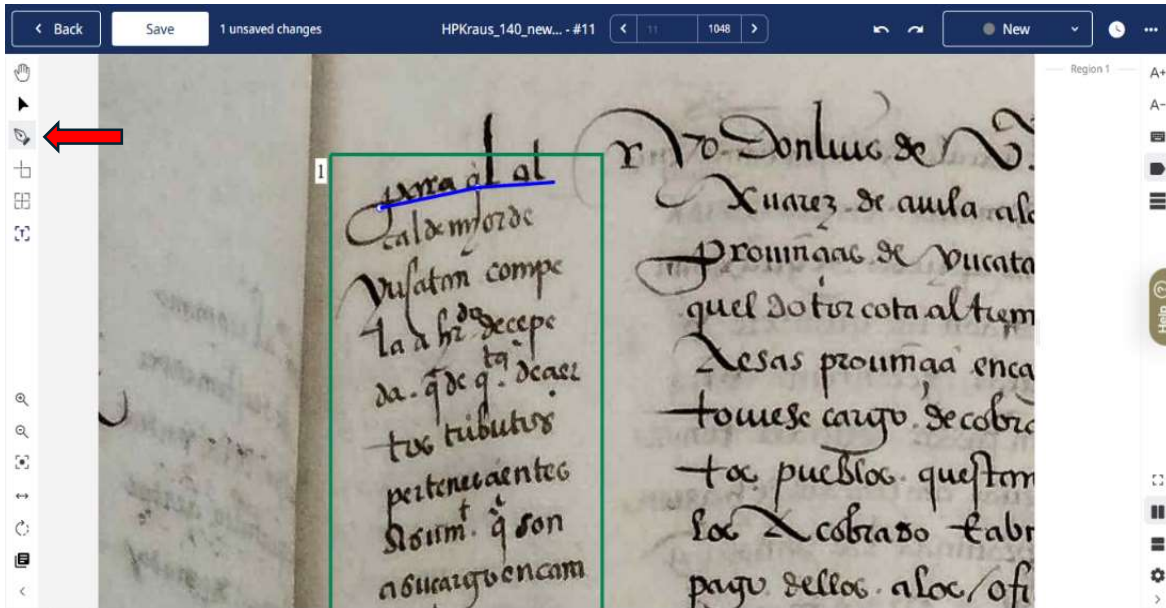 Back
Save
1 unsaved changes
HPKraus_140_new... - #11
11
1048
New
Region 1
A+
A-
Help
1
para q̃l al
calde mjor de
yucatan compe
la a hr.º de cepe
da. q̃ de q.ta de aez
tos tributos
pertenecientes
A su m.t q̃ son
a su cargo en cam
Don luis de
Xuarez. de auila alc
prouinçias de yucata
quel dotor cota al tiem
esas prouinçia enca
touiese cargo. de cobra
tos. pueblos. questan
los cobrado
pago dellos. a los / ofi